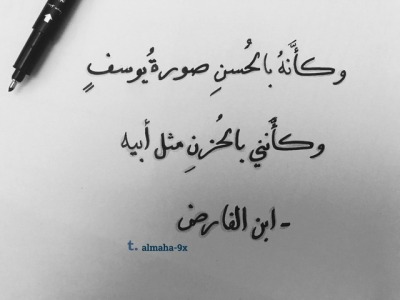 وكأَنَّهُ بالحُسنِ صورةُ يُوسفٍ
وكأَنني بالحُزنِ مثل أبيه
- ابن الفارض
t. almaha-9x